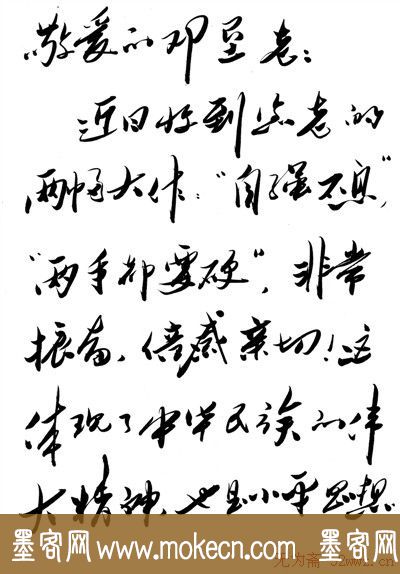 敬爱的邓垦老：
近日收到您老的
两幅大作：“自强不息”，
“两手都要硬”，非常
振奋、倍感亲切！这
体现了中华民族的伟
大精神，也是小平思想
墨客网 www.mokecn.com 墨客网